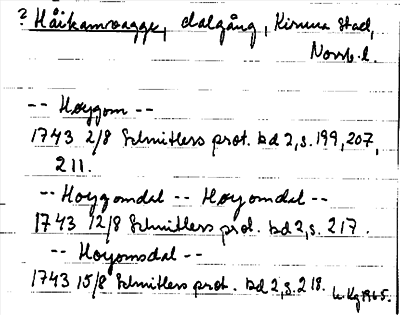 ? Håikamvagge, dalgång, Kiruna stad,
Norrb. l.
-- Høygom --
1743 2/8 Schnitlers prot. bd 2, s. 199, 207,
211.
-- Hoygomdal -- Høyomdal --
1743 12/8 Schnitlers prot. bd 2, s. 217.
-- Hoyomsdal --
1743 15/8 Schnitlers prot. bd 2, s. 218.